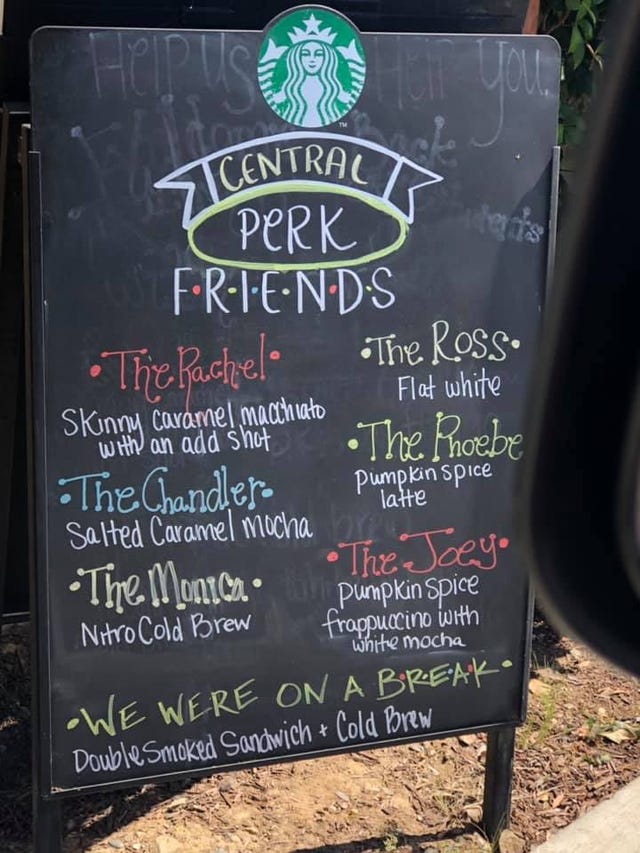 HELP US
You
CENTRAL
PERK
F•R•I•E•N•D•S
•The Rachel•
Skinny Caramel macchiato
with an add shot
•The Chandler•
Salted Caramel mocha
•The Monica•
Nitro Cold Brew
•The Ross•
Flat white
•The Phoebe
pumpkin spice
latte
•The Joey•
pumpkin spice
frappuccino with
white mocha
•WE WERE ON A BREAK•
Double Smoked Sandwich + Cold Brew